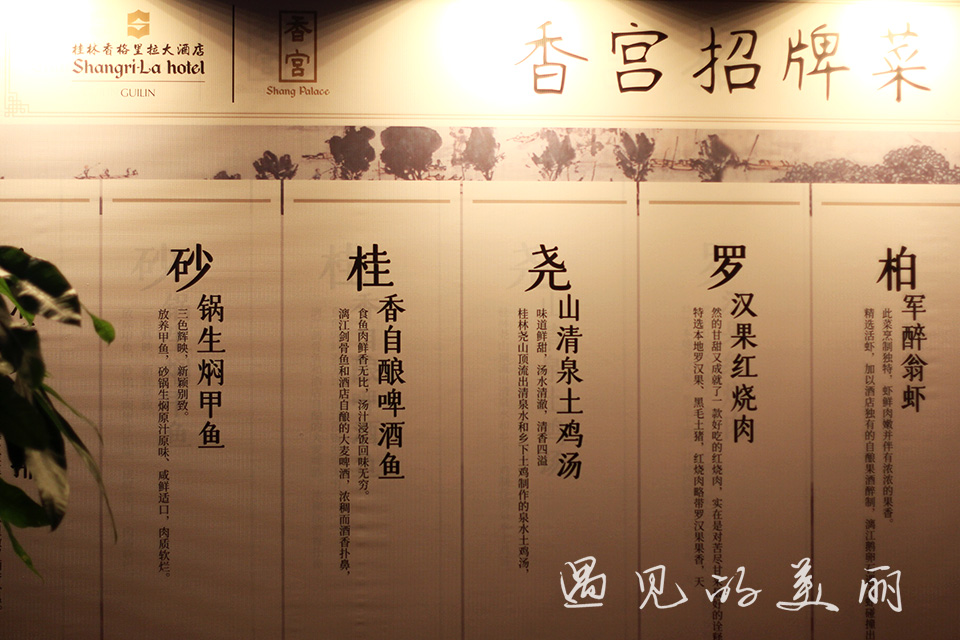 桂林香格里拉大酒店
Shangri-La hotel
GUILIN
香宫
Shang Palace
香宫招牌菜
砂锅生焖甲鱼
放养甲鱼，砂锅生焖原汁原味、咸鲜适口，肉质软烂。
三色辉映，新颖别致。
桂香自酿啤酒鱼
漓江剑骨鱼和酒店自酿的大麦啤酒，浓稠而酒香扑鼻，
食鱼肉鲜香无比，汤汁浸饭回味无穷。
尧山清泉土鸡汤
桂林尧山顶流出清泉水和乡下土鸡制作的泉水土鸡汤，
味道鲜甜，汤水清澈，清香四溢。
罗汉果红烧肉
特选本地罗汉果、黑毛土猪，红烧肉略带罗汉果果香，天
然的甘甜又成就了一款好吃的红烧肉，实在是对苦尽甘
柏军醉翁虾
精选活虾，加以酒店独有的自酿果酒醉制，漓江鹅卵
此菜烹制独特，虾鲜肉嫩并伴有浓浓的果香。
遇见的美丽